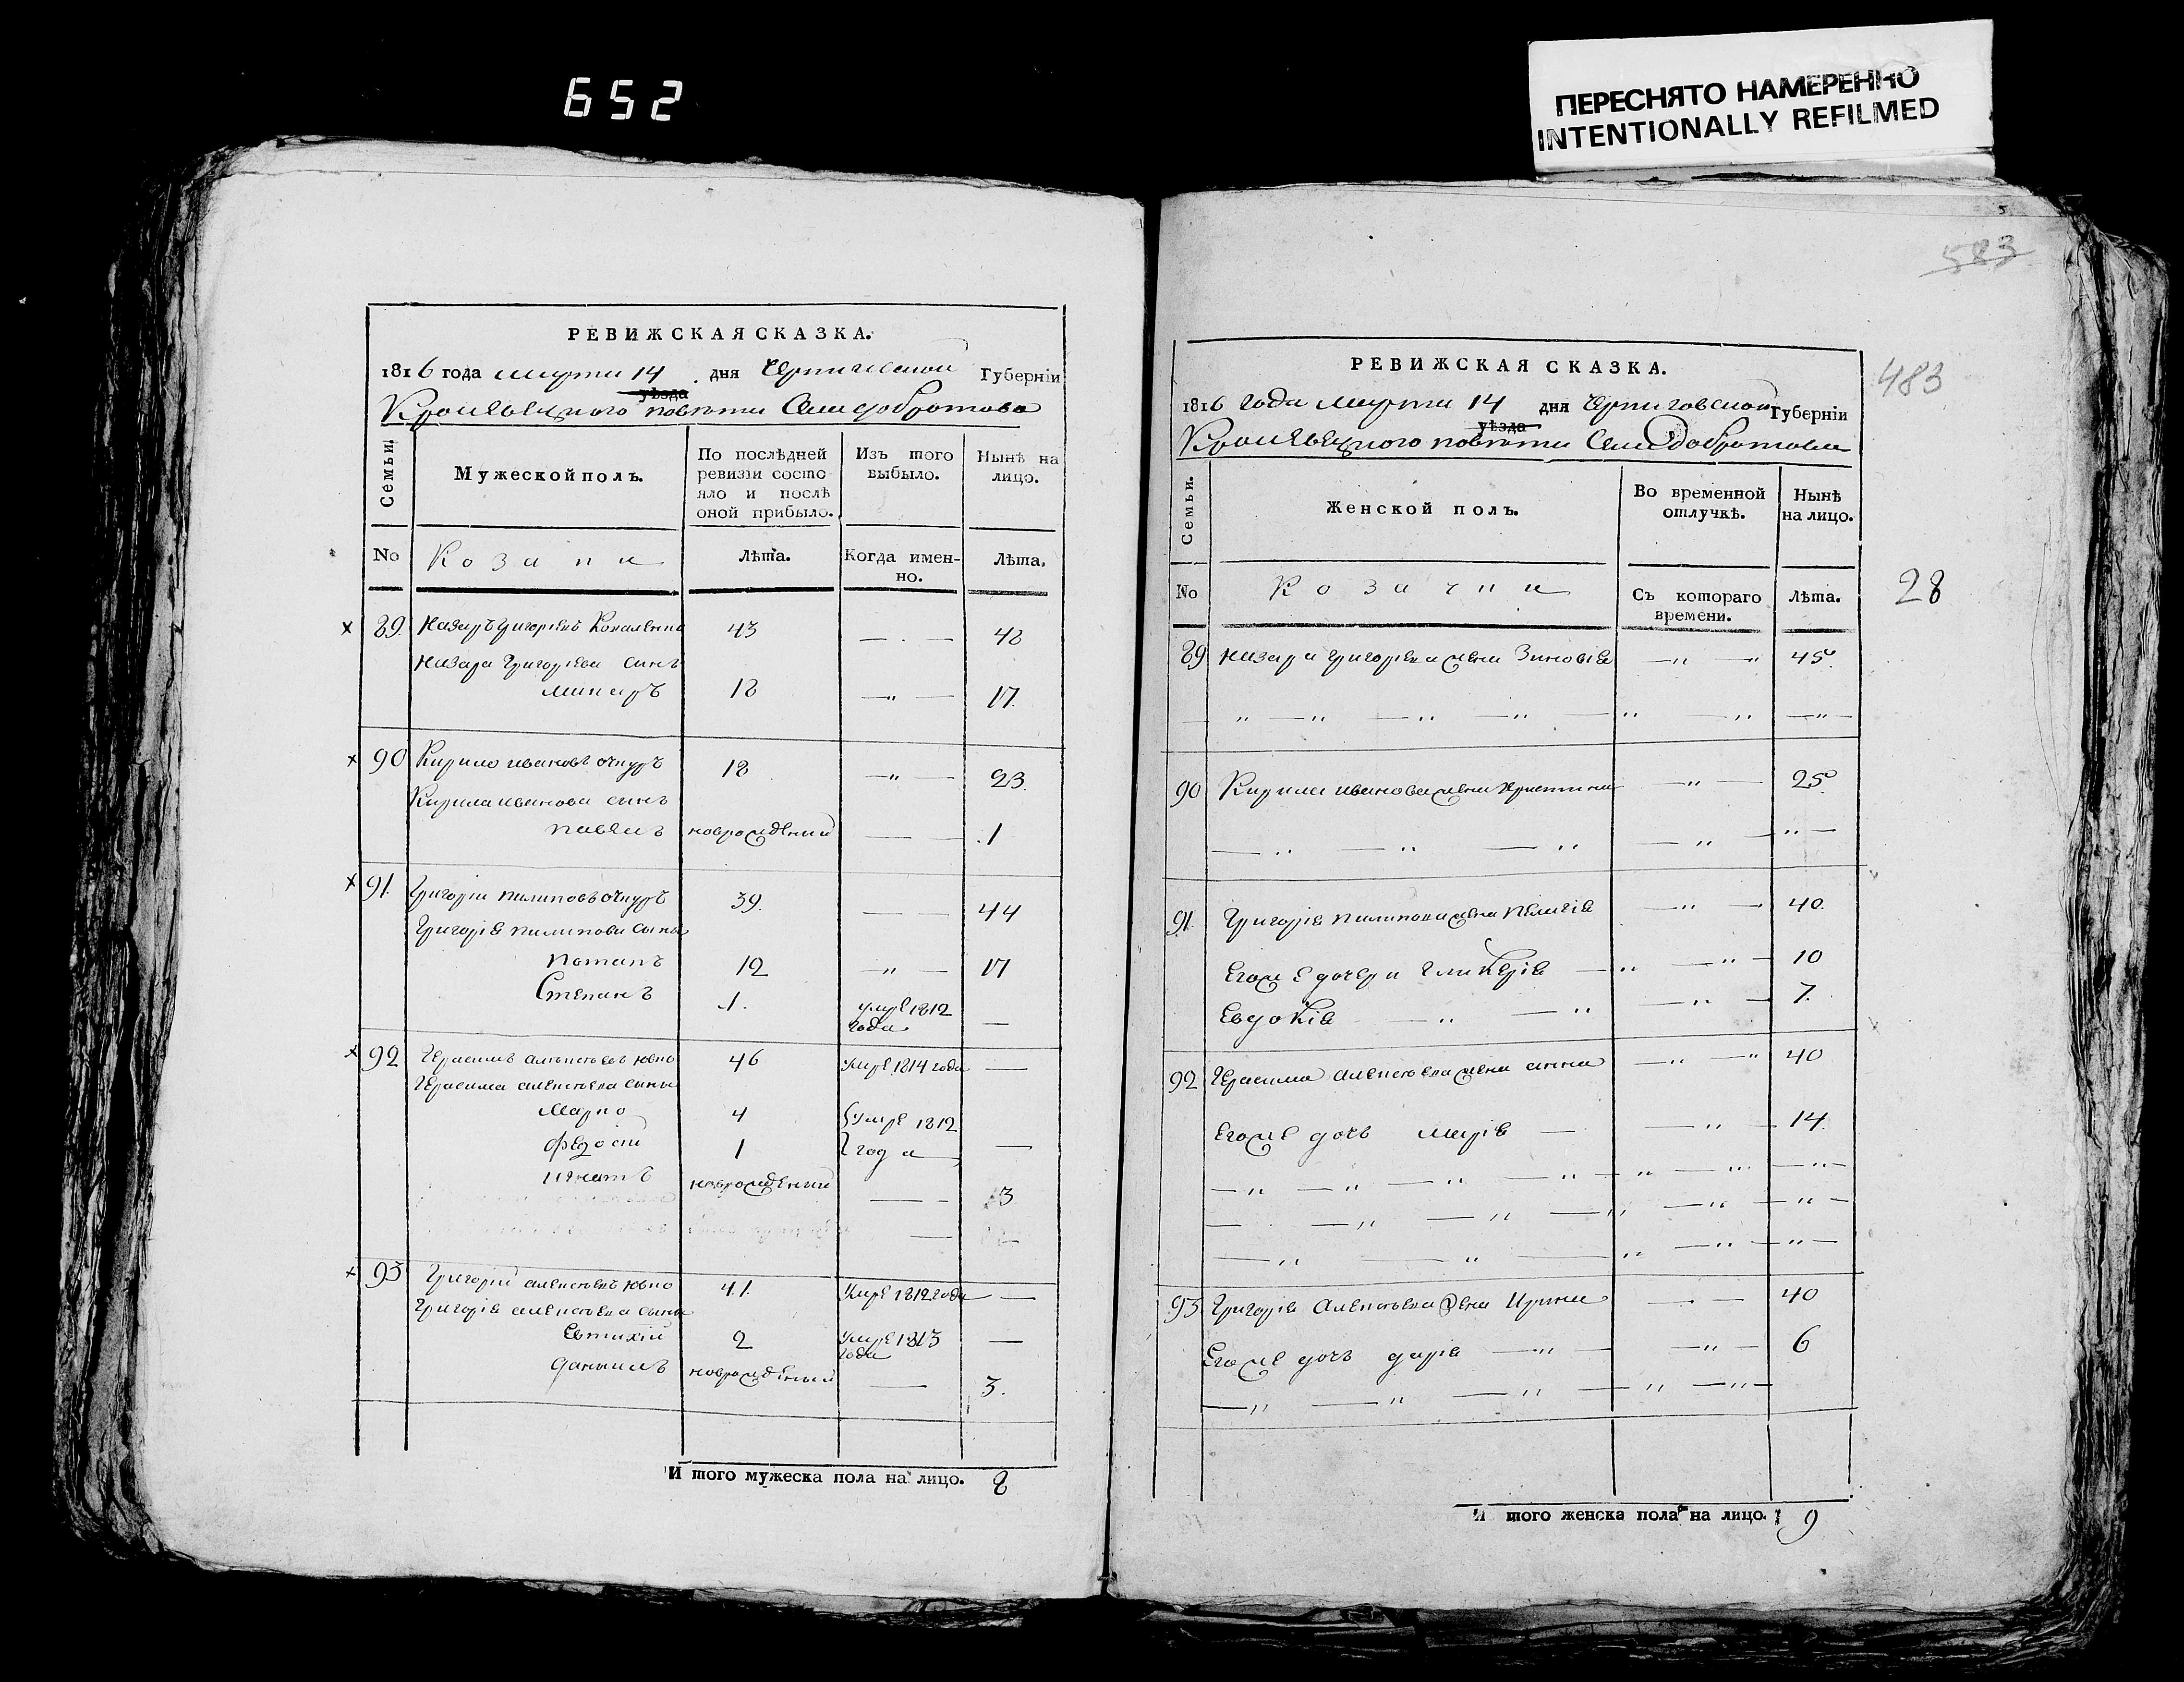 652
ПЕРЕСНЯТО НАМЕРЕННО
INTENTIONALLY REFILMED
583
РЕВИЖСКАЯ СКАЗКА.
1816 года марта 14 дня Черниговской Губернїи
уѣзда
Кролевецкого повѣта Села добротова
Семьи.
Мужеской полъ.
По послѣдней ревизїи состояло и послѣ оной прибыло.
Изъ того выбыло.
Нынѣ на лицо.
No
Козаки
Лѣта.
Когда именно.
Лѣта.
89. Назаръ григорїевъ Коваленко 43 48
Назара григорїева синъ
макаръ 12 17.
90 Кирило ивановъ очкуръ 18 23.
Кирила иванова синъ
павелъ новрожденний 1
91. григорїи пилиповъ очкуръ 39. 44
григорїя пилипова сыны
потапъ 12 17
Степанъ 1. умре 1812 года
92 герасимъ алексѣевъ 46 умре 1814 года
герасима алексѣева сыны
марко 4 умре 1812
федосїй 1 года
игнатъ новрожденний 3
93 григорїй алексѣевъ 41. умре 1812 года
григорїя алексѣева сыны
Евтихїй 2 умре 1813 года
данилъ новрожденний 3.
И того мужеска пола на лицо. 8
РЕВИЖСКАЯ СКАЗКА.
483
1816 года марта 14 дня Черниговской Губернїи
уѣзда
Кролевецкого повѣта Села добротова
Семьи.
Женской полъ.
Во временной отлучкѣ.
Нынѣ на лицо.
No
Козачки
Съ котораго времени.
Лѣта.
28
89 Назара григорїева жена Зиновїя 45.
90 Кирила иванова жена Христина 25.
91. григорїя пилипова жена пелагїя 40.
Егож дочери гликерїя 10
Евдокїя 7.
92 герасима алексѣева жена анна 40
Егоже дочь марїя 14.
93 григорїя алексѣева жена Ирина 40
Егоже дочь дарїя 6
И того женска пола на лицо. 9